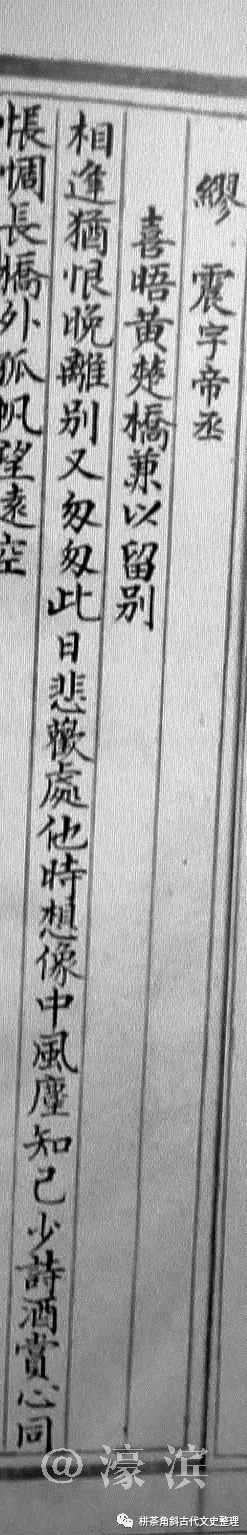 繆 震字帝丞
喜晤黃楚橋兼以留别
相逢猶恨晚離别又匆匆此日悲歡處他時想像中風塵知己少詩酒賞心同
悵惆長橋外孤帆望遠空
@濠滨
栟茶角斜古代文史整理